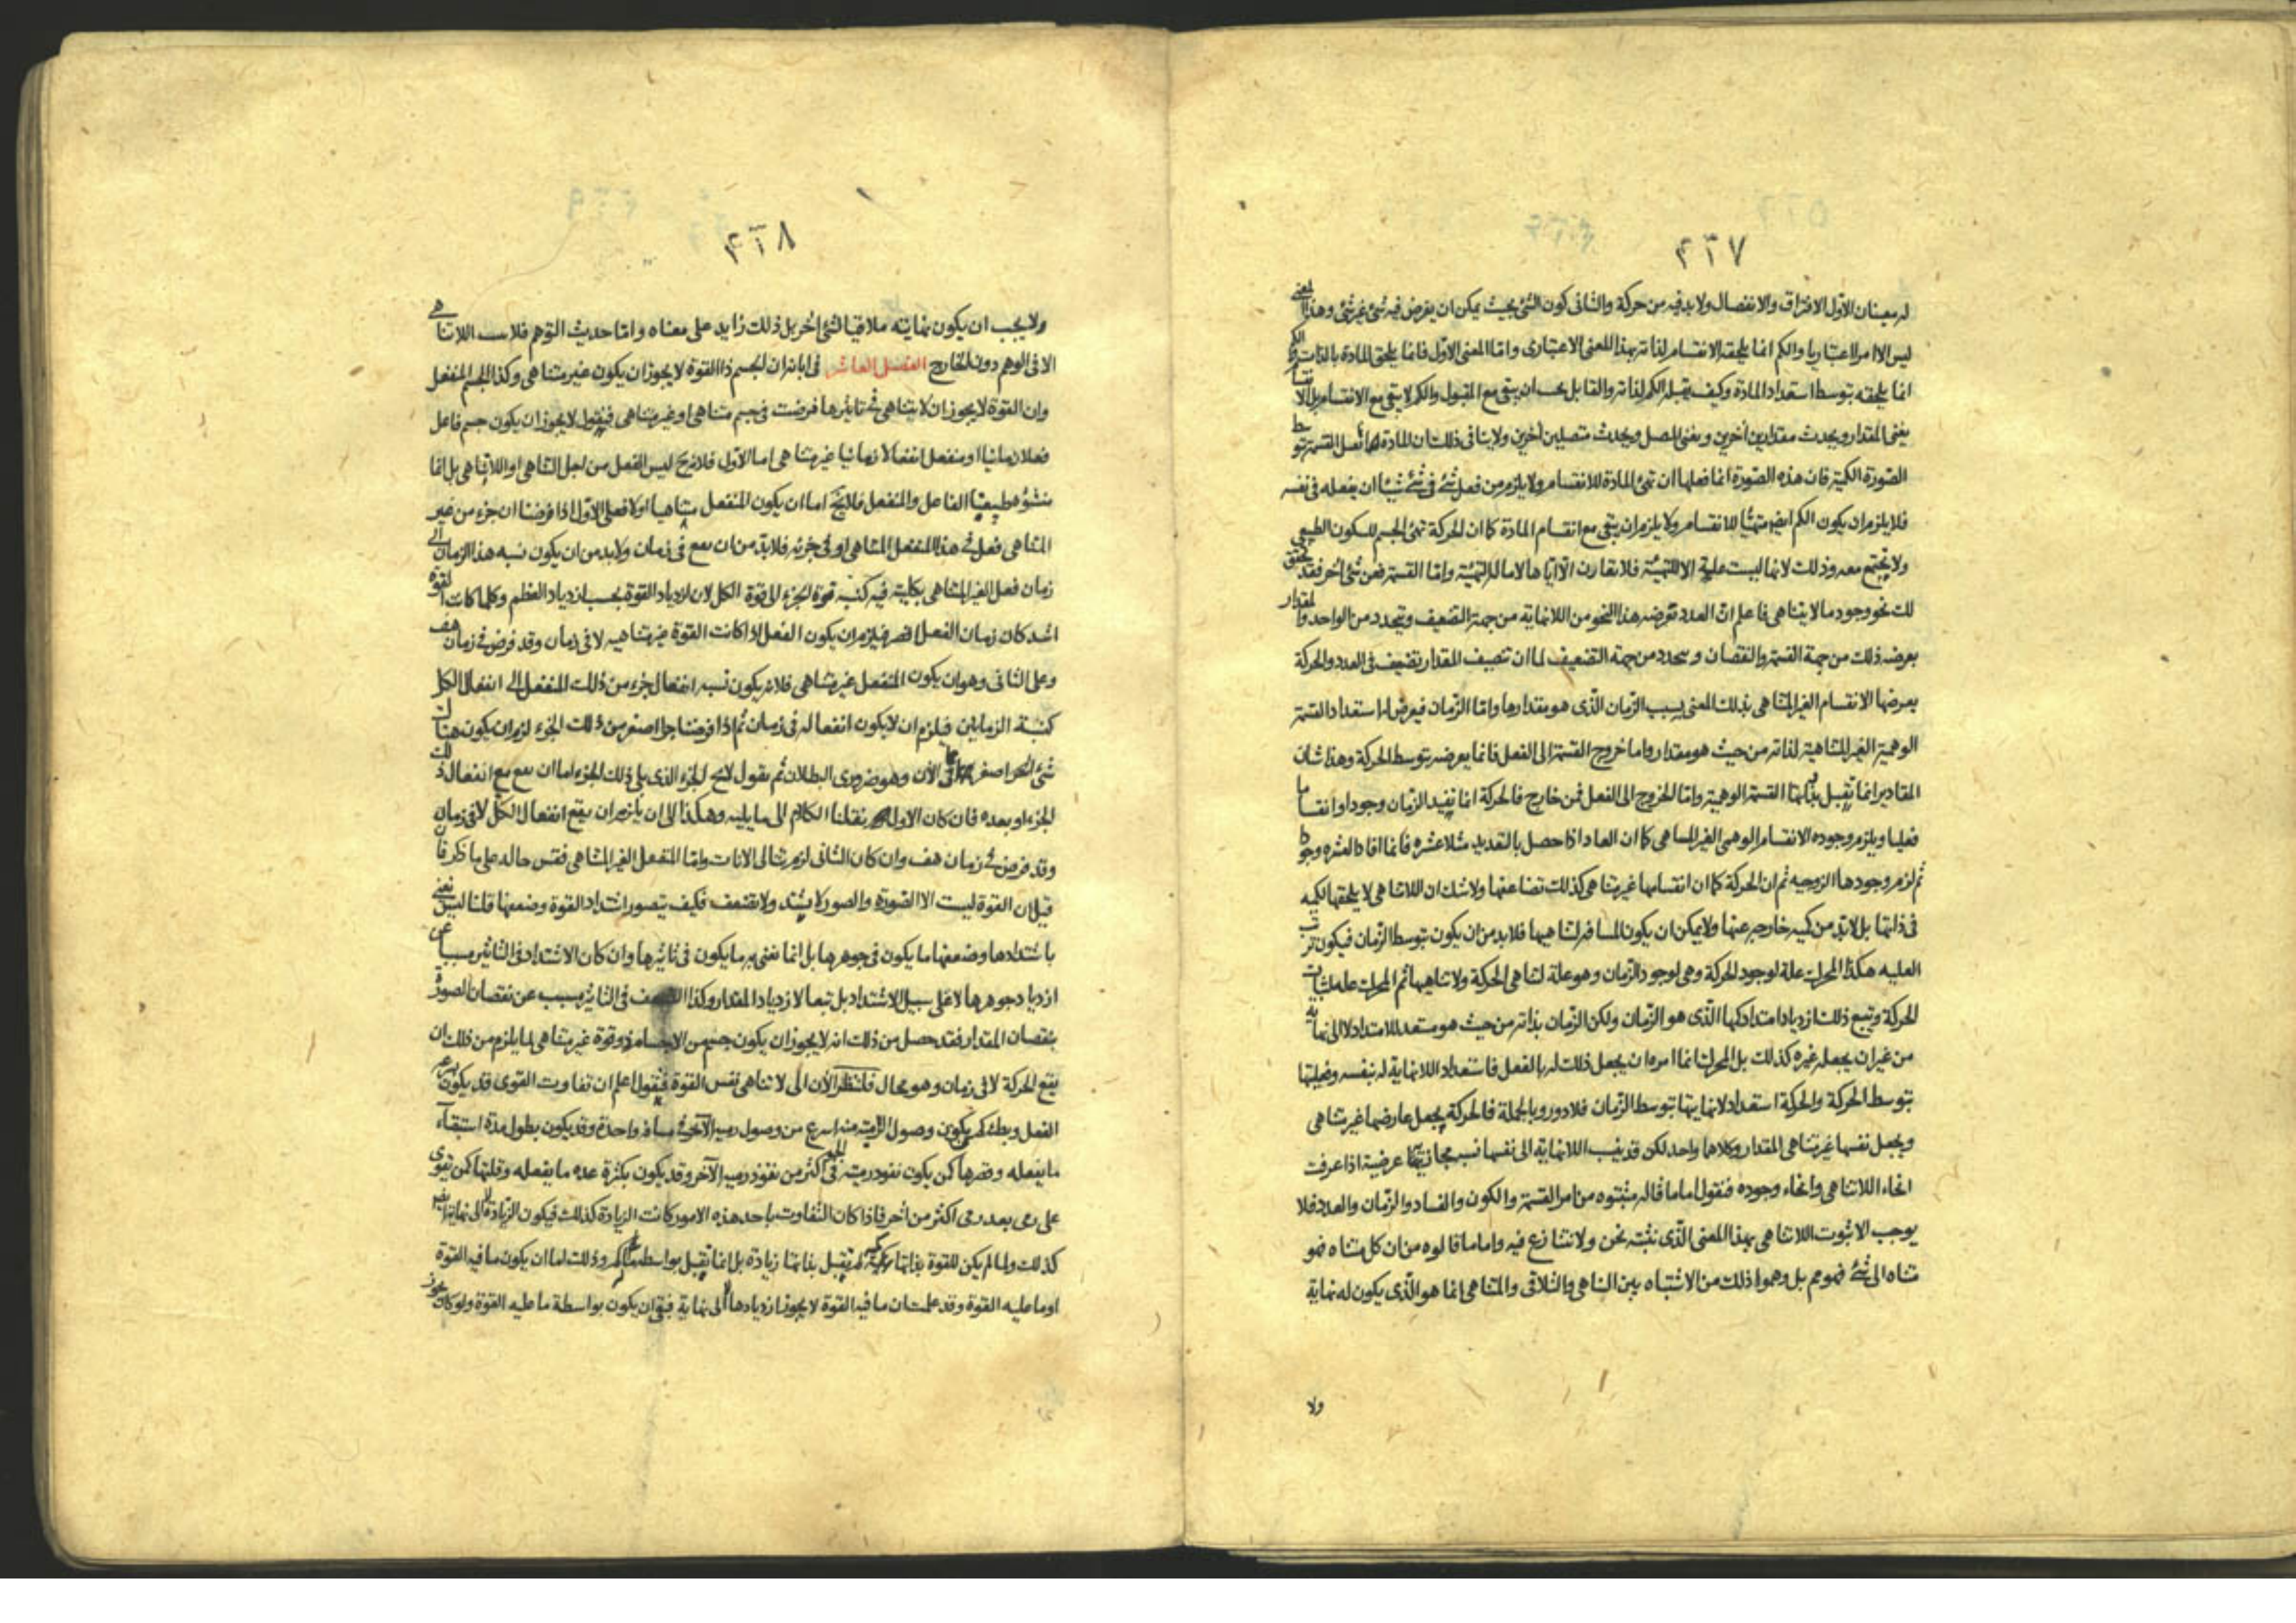 ٤٢٧
له معنيان الاوّل الافتراق والانفصال ولابد فيه من حركة والثانى كون الشئ بحيث يمكن ان يفرض فيه شئ غير شئ وهذا المعنى
ليس الا امرا اعتباريا والكم انما يلحقه الانقسام لذاته بهذا المعنى الاعتبارى واما المعنى الاوّل فانما يلحق المادة بالذات والكم
انما يلحقه بتوسط استعداد المادة وكيف يقبله الكم لذاته والقابل يجب ان يبقى مع المقبول والكم لا يبقى مع الانقسام بل
يفنى المقدار ويحدث مقدارين آخرين ويفنى المتصل ويحدث متصلين آخرين ولا ينافى ذلك ان المادة انما القسمة بتوسط
الصّورة الكمية فان هذه الصّورة انما فعلها ان تهئ المادة للانقسام ولا يلزم من فعل شئ فى شئ شيئا ان يفعله فى نفسه
فلا يلزم ان يكون الكم ايضا متهيّئا للانقسام ولا يلزم ان يبقى مع انقسام المادة كما ان الحركة تهئ الجسم للسكون الطبيعى
ولا يجتمع معه وذلك لانها ليست علة الا للتهيئة فلا تقارن الا اياها لا ما له التهيئة واما القسمة فعن شئ آخر فقد تحقق
لك نحو وجود ما لا يتناهى فاعلم انّ العدد تعرضه هذا النحو من اللانهاية من جهة التضعيف ويتحدد من الواحد والمقدار
يعرضه ذلك من جهة القسمة والنقصان ويتحدد من جهة التضعيف لما ان تنصيف المقدار تضعيف فى العدد والحركة
يعرضها الانقسام الغير المتناهى بذلك المعنى بسبب الزّمان الّذى هو مقدارها واما الزّمان فيعرض له استعداد القسمة
الوهمية الغير المتناهية لذاته من حيث هو مقدار واما خروج القسمة الى الفعل فانما يعرضه بتوسط الحركة وهذا شان
المقادير انما تقبل بذاتها القسمة الوهمية واما الخروج الى الفعل فمن خارج فالحركة انما تفيد الزّمان وجودا وانقساما
فعليا ويلزم وجوده الانقسام الوهمى الغير المتناهى كما ان العاد اذا حصل بالتعديد مثلا عشرة فانما افاد العشرة وجودا
ثم لزم وجودها الزوجيه ثم ان الحركة كما ان انقسامها غير متناهى كذلك تضاعفها ولا شك ان اللاتناهى لا يلحقها لكميه
فى ذاتها بل لابد من كميه خارجه عنها ولا يمكن ان يكون المسافه لتناهيها فلابد من ان يكون بتوسط الزّمان فيكون ترتب
العليه هكذا المحرك علة لوجود الحركة وهى لوجود الزّمان وهو علة لتناهى الحركة ولا تناهيها ثم المحرك علة لثبات
الحركة وتبع ذلك ازدياد امتداد كمها الّذى هو الزّمان ولكن الزّمان بذاته من حيث هو مستعد للامتداد لا الى نهاية
من غير ان يجعله غيره كذلك بل المحرك انما امره ان يجعل ذلك له بالفعل فاستعداد اللانهاية له بنفسه وفعليتها
بتوسط الحركة والحركة استعداد لانهايتها بتوسط الزّمان فلا دور وبالجملة فالحركة يجعل عارضها غير متناهى
ويجعل نفسها غير متناهى المقدار وكلاهما واحد لكن قد ينسب اللانهاية الى نفسها نسبة مجازية عرضية اذا عرفت
انحاء اللاتناهى وانحاء وجوده فنقول اما ما قاله مثبتوه من امر القسمة والكون والفساد والزّمان والعدد فلا
يوجب الا ثبوت اللاتناهى بهذا المعنى الّذى نثبته نحن ولا نتنازع فيه واما ما قالوه من ان كل متناه فهو
متناه الى شئ فهو وهم بل وهموا ذلك من الاشتباه بين التناهى والتلاقى والمتناهى انما هو الّذى يكون له نهاية
ولا
٤٢٨
ولا يجب ان يكون نهايته ملاقيا لشئ آخر بل ذلك زايد على معناه واما حديث التوهم فلا يثبت اللاتناهى
الا فى الوهم دون الخارج الفصل العاشر فى ابانة ان الجسم ذا القوة لا يجوز ان يكون غير متناهى وكذا الجسم المنفعل
وان القوة لا يجوز ان لا يتناهى فى تاثيرها فرضت فى جسم متناهى او غير متناهى فنقول لا يجوز ان يكون جسم فاعل
فعلا زمانيا او منفعل انفعالا زمانيا غير متناهى اما الاوّل فلانه ليس الفعل من اجل التناهى او اللاتناهى بل انما
منشؤه طبيعتا الفاعل والمنفعل فلايخ اما ان يكون المنفعل متناهيا اولا فعلى الاوّل اذا فرضنا ان جزء من غير
المتناهى فعل فى هذا المنفعل المتناهى او فى جزئه فلابدّ من ان يقع فى زمان ولابد من ان يكون نسبة هذا الزمان الى
زمان فعل الغير المتناهى بكليته فيه كنسبة قوة الجزء الى قوة الكل لان ازدياد القوة بحسب ازدياد العظم وكلما كانت القوة
اشد كان زمان الفعل اقصر فيلزم ان يكون الفعل اذا كانت القوة غير متناهيه لا فى زمان وقد فرض فى زمان هف
وعلى الثانى وهو ان يكون المنفعل غير متناهى فلانه يكون نسبة انفعال جزء من ذلك المنفعل الى انفعال الكل
كنسبة الزمانين فيلزم ان لا يكون انفعاله فى زمان ثم اذا فرضنا جزءا اصغر من ذلك الجزء لزم ان يكون هناك
شئ آخر اصغر الآن وهو ضرورى البطلان ثم نقول لايخ الجزء الذى يلى ذلك الجزء اما ان يقع مع انفعال ذلك
الجزء او بعده فان كان الاول نقلنا الكلام الى ما يليه وهكذا الى ان يلزم ان يقع انفعال الكل لا فى زمان
وقد فرض فى زمان هف وان كان الثانى لزم تتالى الانات واما المنفعل الغير المتناهى فقس حاله على ما ذكر فان
قيل ان القوة ليست الا الصّورة والصور لا يشتد ولا تضعف فكيف يتصور اشتداد القوة وضعفها قلنا ليس نعنى
باشتدادها وضعفها ما يكون فى جوهرها بل انما نعنى به ما يكون فى تاثيرها وان كان الاشتداد فى التاثير مسببا عن
ازدياد جوهرها لا على سبيل الاشتداد بل تبعا لازدياد المقدار وكذا الضعف فى التاثير مسبب عن نقصان الصورة
بنقصان المقدار فقد حصل من ذلك انه لا يجوز ان يكون جسم من الاجسام ذو قوة غير متناهى لما يلزم من ذلك ان
يقع الحركة لا فى زمان وهو محال فلننظر الآن الى لا تناهى نفس القوة فنقول اعلم ان تفاوت القوى قد يكون بسرعة
الفعل وبطئه كمن يكون وصول الرمية منه اسرع من وصول رمية الآخر فى مسافة واحدة وقد يكون بطول مدة استبقاء
ما يفعله وقصرها كمن يكون نفوذ رميته فى الجو اكثر من نفوذ رمية الآخر وقد يكون بكثرة عدة ما يفعله وقلتها كمن يقوى
على رمى بعد رمى اكثر من آخر فاذا كان التفاوت باحد هذه الامور كانت الزيادة كذلك فيكون الزيادة لا الى نهاية ايضا
كذلك ولما لم يكن للقوة بذاتها كمية لم تقبل بذاتها زيادة بل انما تقبل بواسطة وذلك اما ان يكون ما فيه القوة
او ما عليه القوة وقد علمت ان ما فيه القوة لا يجوز ازديادها لا الى نهاية فبقى ان يكون بواسطة ما عليه القوة ولو كان يجوز